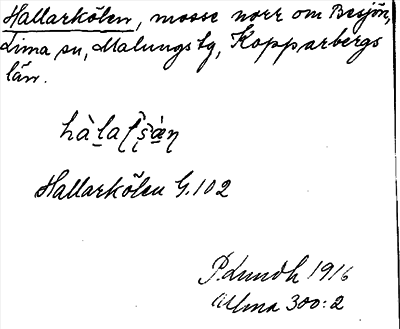 Hallarkölen, mosse norr om Besjön,
Lima sn, Malungs tg, Kopparbergs
län.
Hallarkölen G.102
P. Lundh 1916
Ulma 300:2